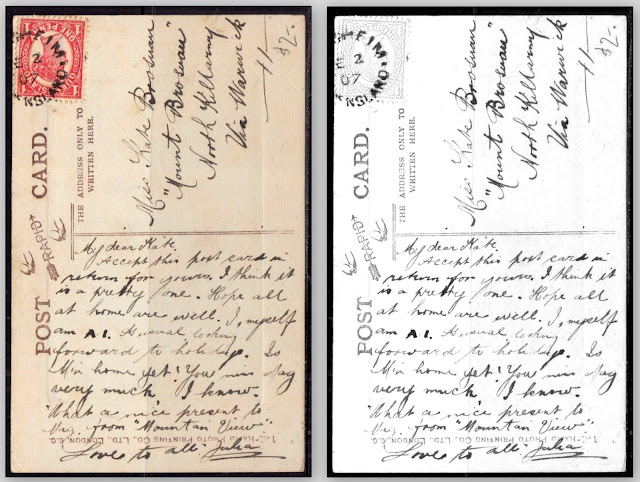 ONE PENNY
1 1
2
07
NSLAND
POST CARD.
RAPID
THE ADDRESS ONLY TO
WRITTEN HERE.
Miss Kate Brosnan
"Mount Brosnan"
North Killarney
Via Warwick
11
My dear Kate.
Accept this post card in
return for yours. I think it
is a pretty one. Hope all
at home are well. I, myself
am A1. As usual looking
forward to holidays. Is
home yet? You May
very much I know.
What a nice present to
from "Mountain View"
PHOTO PRINTING CO., LTD. LONDON, E.C.
Love to all Julia
2
07
NSLAND
POST CARD.
RAPID
THE ADDRESS ONLY TO
WRITTEN HERE.
Miss Kate Brosnan
"Mount Brosnan"
North Killarney
Via Warwick
11
My dear Kate.
Accept this post card in
return for yours. I think it
is a pretty one. Hope all
at home are well. I, myself
am A1. As usual looking
forward to holidays. Is
home yet? You May
very much I know.
What a nice present to
from "Mountain View"
PHOTO PRINTING CO., LTD. LONDON, E.C.
Love to all Julia